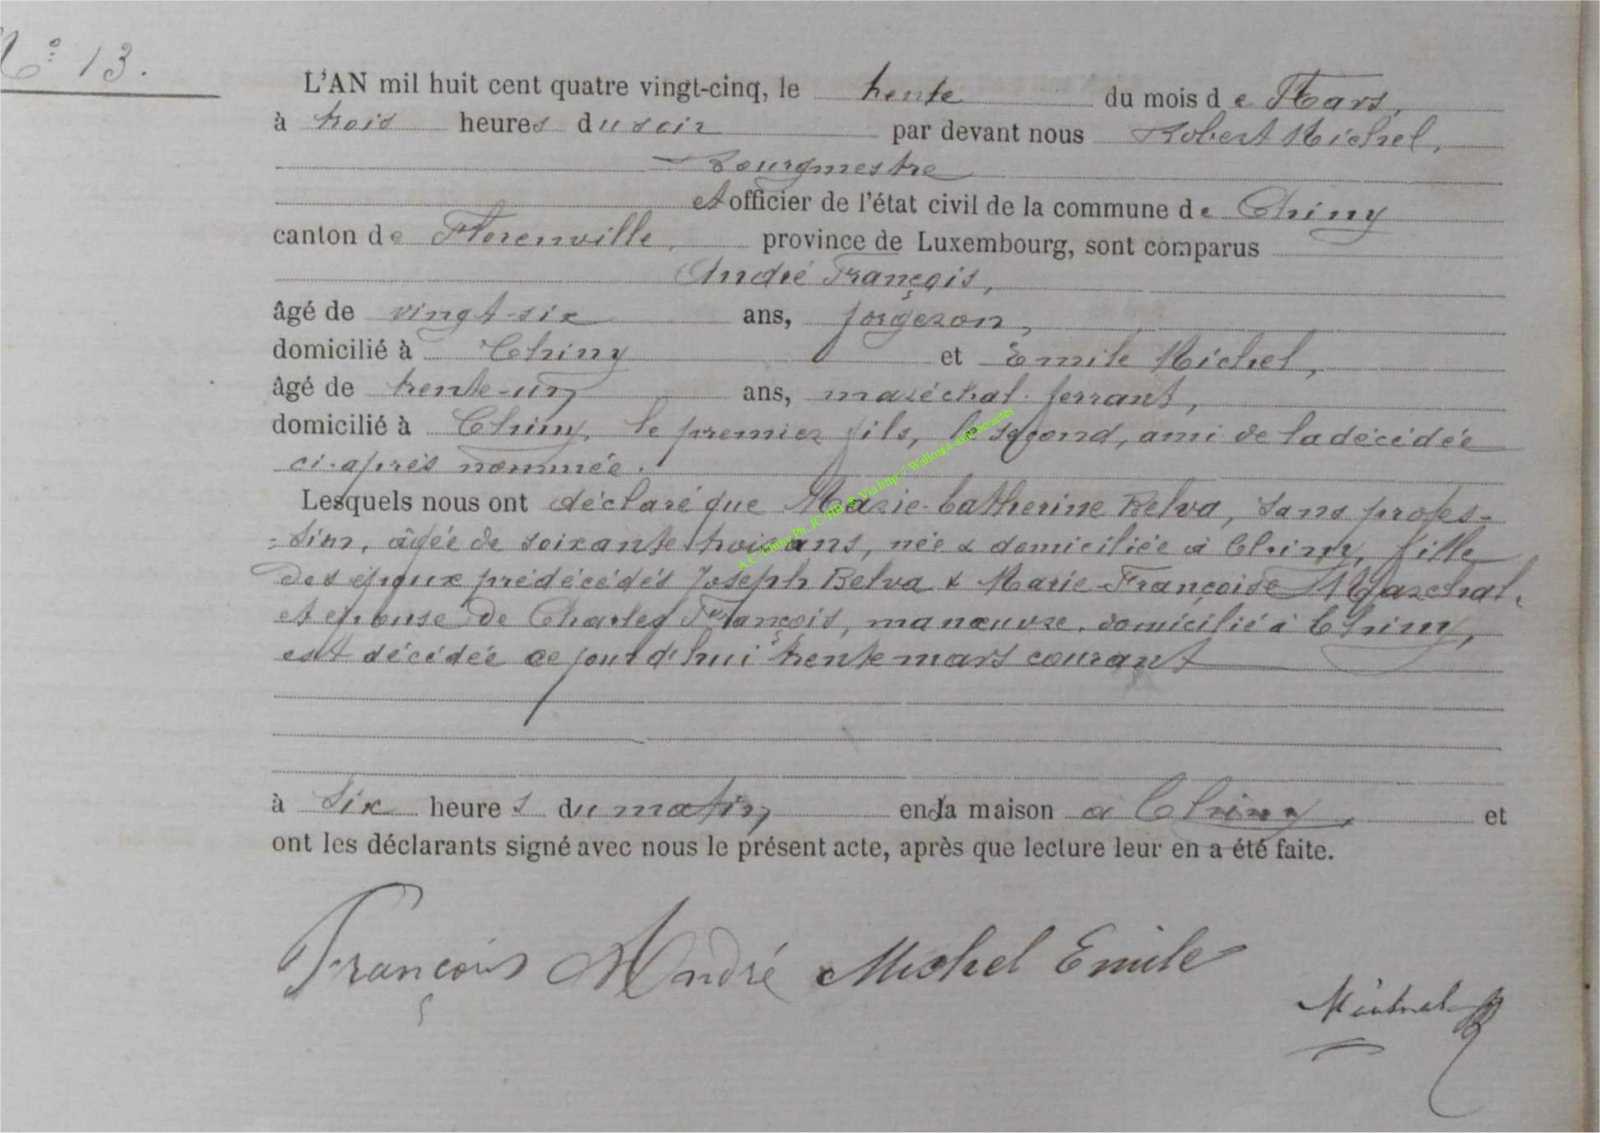 N° 13.
L'AN mil huit cent quatre vingt-cinq, le trente du mois de Mars,
à trois heures du soir par devant nous Robert Michel,
Bourgmestre
et officier de l'état civil de la commune de Chiny
canton de Florenville, province de Luxembourg, sont comparus
André François,
âgé de vingt-six ans, forgeron,
domicilié à Chiny et Emile Michel,
âgé de trente-un ans, maréchal-ferrant,
domicilié à Chiny, le premier fils, le second, ami de la décédée
ci-après nommée.
Lesquels nous ont déclaré que Marie-Catherine Belva, sans profes-
=sion, âgée de soixante trois ans, née & domiciliée à Chiny, fille
des époux prédécédés Joseph Belva & Marie-Françoise Marchal,
et épouse de Charles François, manœuvre, domicilié à Chiny,
est décédée ce jourd'hui trente mars courant
à six heures du matin en la maison à Chiny, et
ont les déclarants signé avec nous le présent acte, après que lecture leur en a été faite.
François André Michel Emile
Michel R